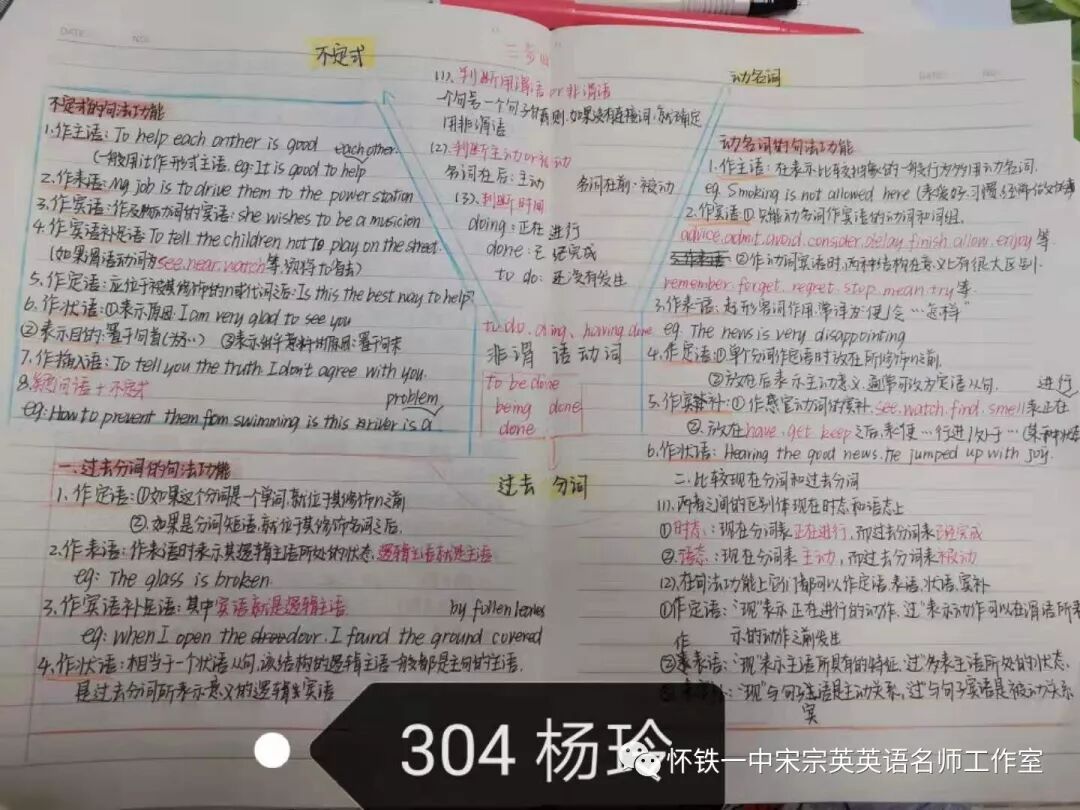 DATE: NO:
不定式
不定式的句法功能
1.作主语: To help each orther is good each other.
(一般用it作形式主语. eg: It is good to help
2.作表语: My job is to drive them to the power station
3.作宾语: 作及物动词的宾语: she wishes to be a musicion
4.作宾语补足语: To tell the children not to play on the street.
(如果谓语动词为see.near.watch等,须将to省去)
5.作定语: 应位于被其修饰的n或代词之后: Is this the best way to help?
6.作状语: ①表示原因: I am very glad to see you
②表示目的: 置于句首
7.作插入语: To tell you the truth I don't agree with you.
8.疑问词语+不定式 problem
eg: How to prevent them from swimming is this river is a
三步曲
(1).判断用谓语 or 非谓语
一个句号一个句子有原则.如果没有连接词,就确定
用非谓语
(2).判断主动or被动
名词在后: 主动 名词在前: 被动
(3).判断时间
doing: 正在进行
done: 已经完成
to do: 还没有发生
to do. doing、having done
非谓语动词
to be done
being done
done
过去分词
动名词
DATE: NO:
动名词的句法功能
1.作主语: 在表示比较抽象的一般行为多用动名词.
eg. Smoking is not allowed here
2.作宾语①只能动名词作宾语的动词和词组.
advice.admit.avoid.consider.delay.finish.allow.enjoy等
②作动词宾语时,两种结构在意义上有很大区别.
remember.forget.regret.stop.mean.try等.
3.作表语: 起形容词作用.常译为"使/令…怎样"
eg. The news is very disappointing
4.作定语: ①单个分词作定语时放在所修饰n之前.
②放在后表示主动意义,通常可改为定语从句. 进行
5.作宾补: ①作感官动词的宾补.see.watch.find.smell表正在
②.放在have.get keep之后,表使…
6.作状语: Hearing the good news. He jumped up with joy.
二.比较现在分词和过去分词
(1).两者之间的区别体现在时态和语态上
①时态: 现在分词表正在进行,而过去分词表已经完成
②语态: 现在分词表主动,而过去分词表被动
(2).在句法功能上它们都可以作定语.表语.状语.宾补
①作定语: "现"表示正在进行的动作."过"表示动作可以在谓语所表
示的动作之前发生
②作表语: "现"表示主语所具有的特征."过"多表主语所处的状态.
"现"与句子主语是主动关系,"过"与句子宾语是被动关系
宾
一.过去分词的句法功能
1.作定语: ①如果这个分词是一个单词,就位于其修饰n之前
②.如果是分词短语,就位于其修饰名词之后.
2.作表语: 作表语时表示其逻辑主语所处的状态,逻辑主语就是主语
eg: The glass is broken.
3.作宾语补足语: 其中宾语就是逻辑主语 by follen leaves
eg: when I open the door. I found the ground covered
4.作状语: 相当于一个状语从句,该结构的逻辑主语一般都是主句的主语.
是过去分词所表示意义的逻辑宾语
304 杨玲
怀铁一中宋宗英英语名师工作室